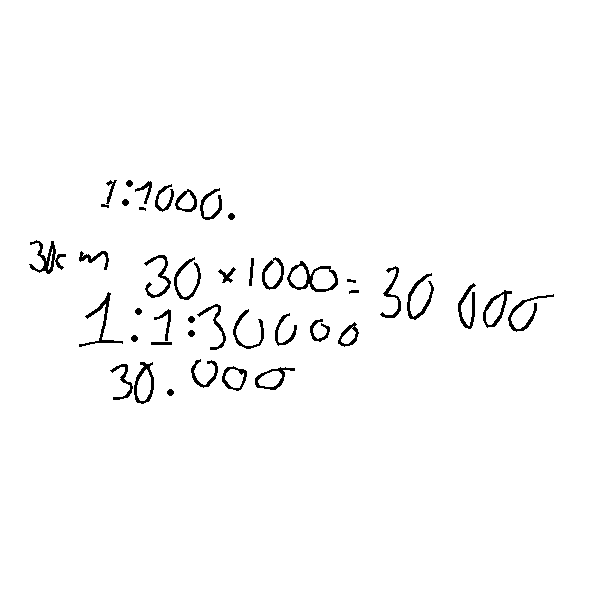 1:1000.
30 × 1000 = 30 000
1:1:30000
30.000